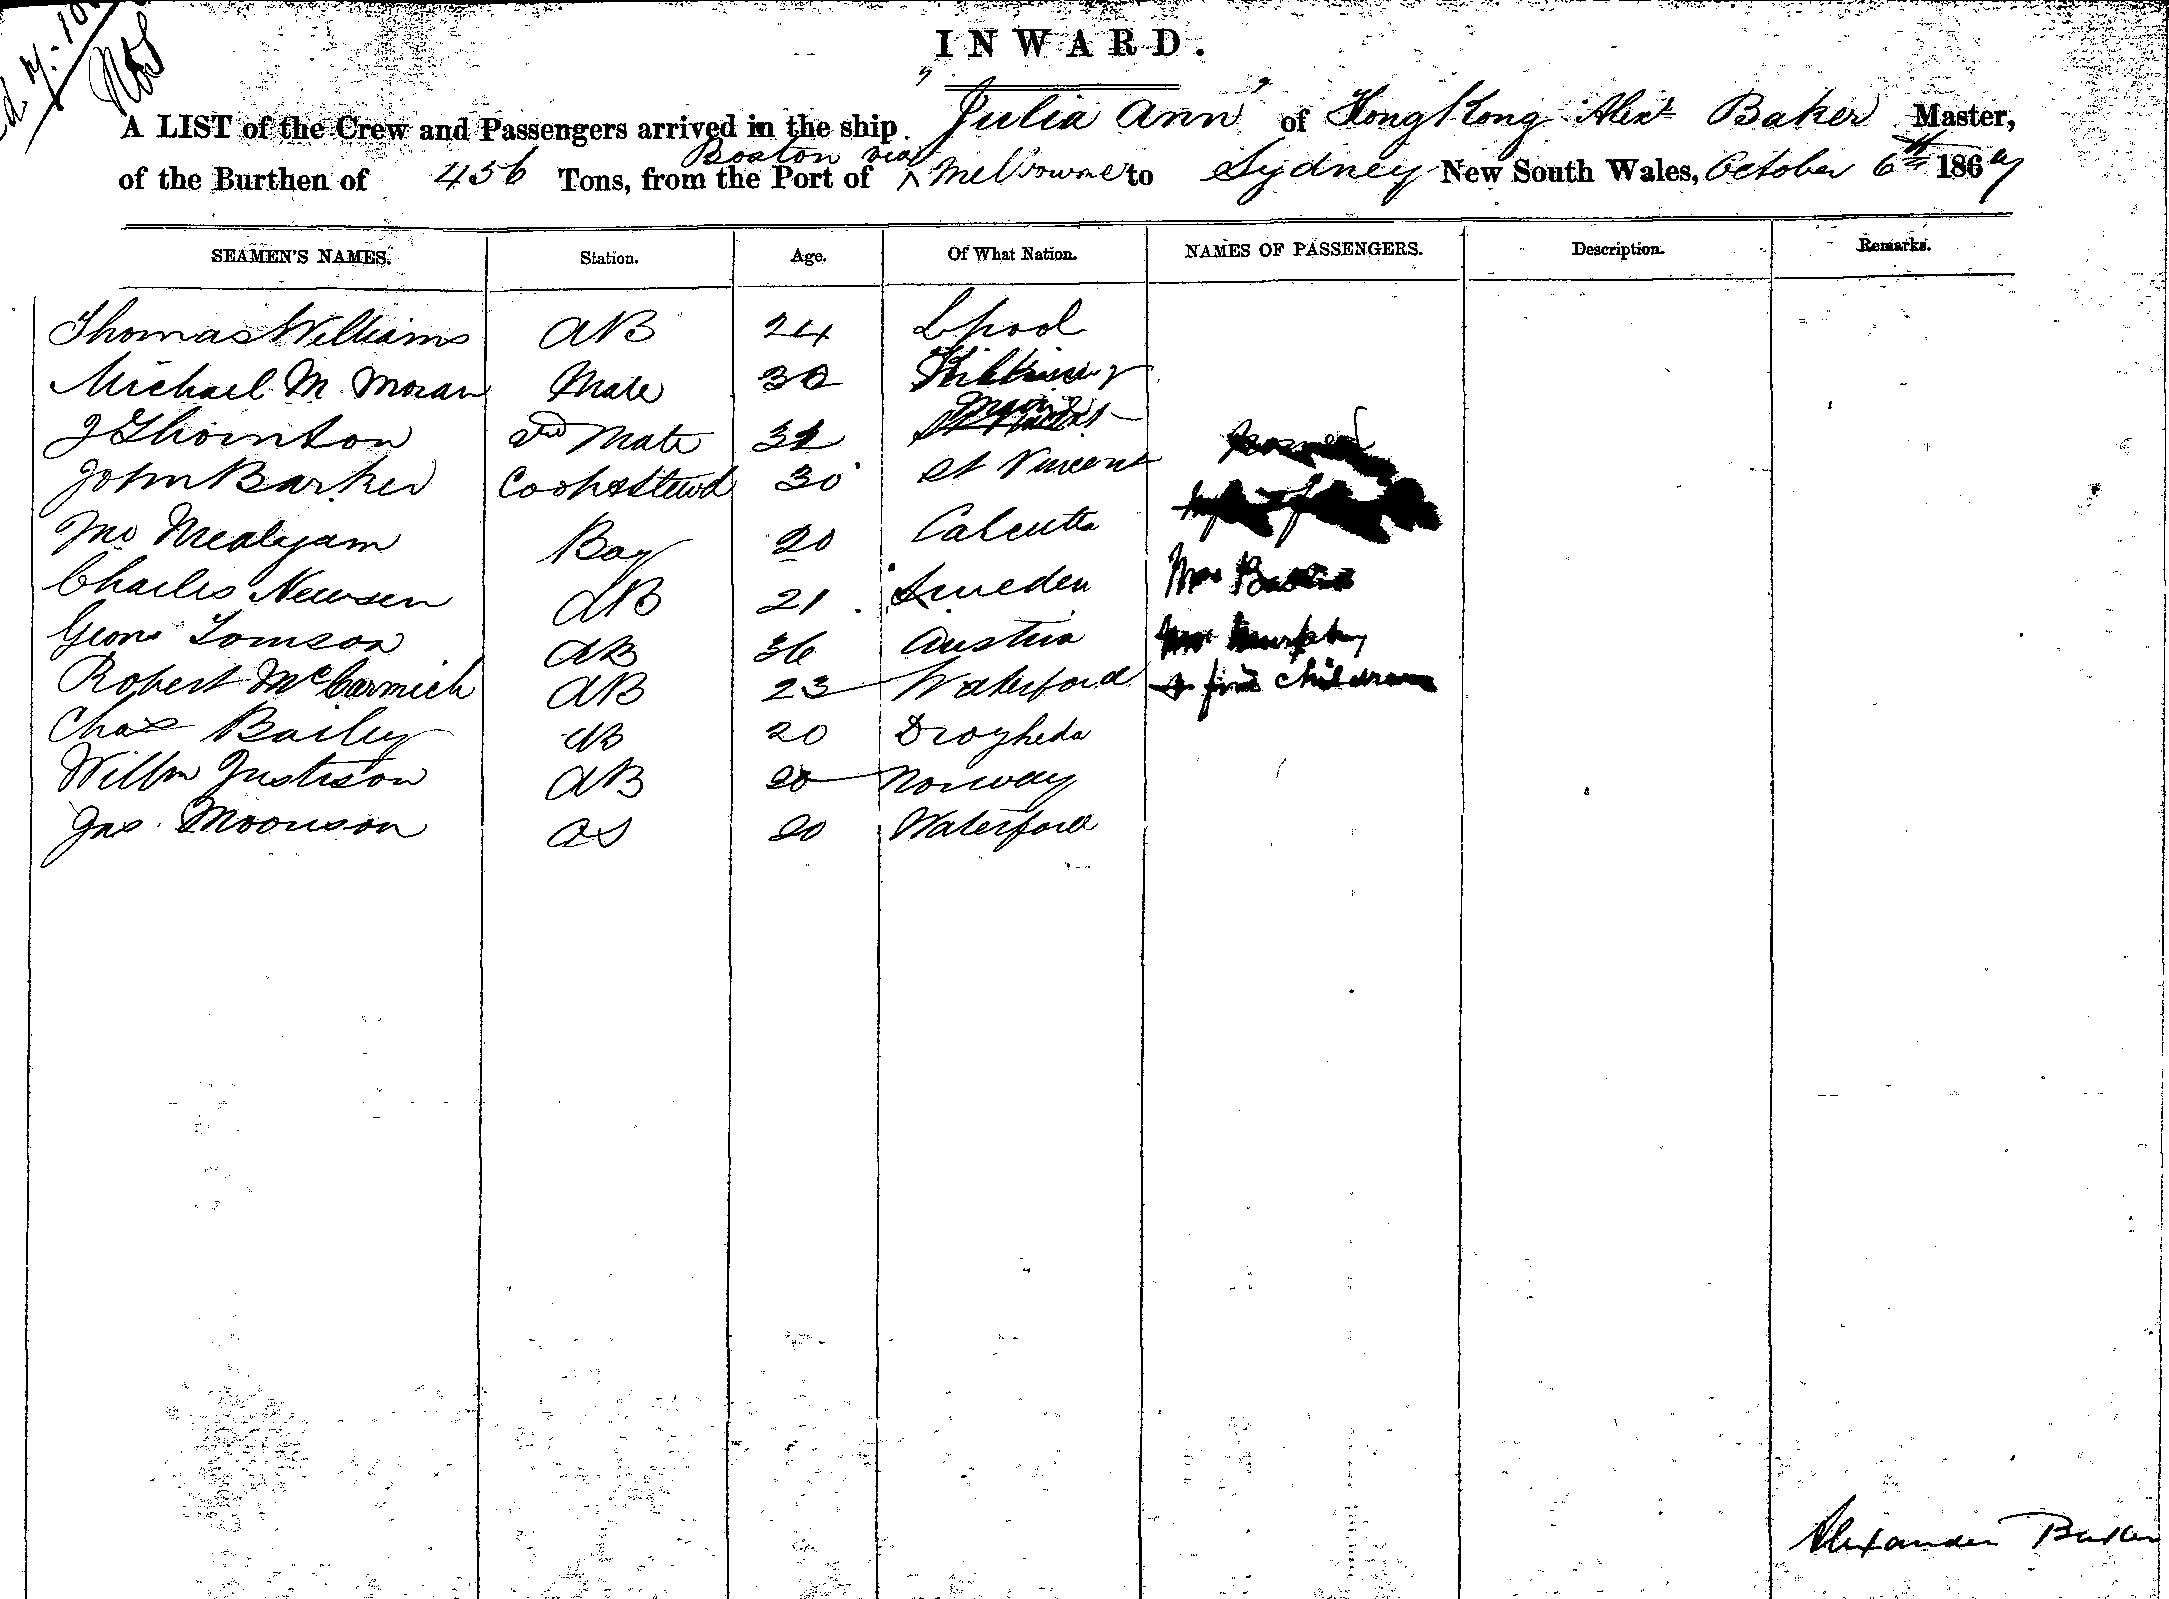 INWARD.
A LIST of the Crew and Passengers arrived in the ship "Julia Ann" of Hong Kong Alexr Baker Master,
Boston via
of the Burthen of 456 Tons, from the Port of ^ Melbourne to Sydney New South Wales, October 6th 1867
SEAMEN'S NAMES. Station. Age. Of What Nation. NAMES OF PASSENGERS. Description. Remarks.
Thomas Williams AB 24 Lpool
Michael M. Moran Mate 30
J Thornton 2nd Mate 32
John Barker Cook & Stewd 30 St Vincent
Jno Mealyam Boy 20 Calcutta
Charles Newsen AB 21 Sweden Mrs
George Tomson AB 36 Austria Mrs Murphy
Robert McCormick AB 23 Waterford & five children
Chas Bailey AB 20 Drogheda
Willm Justison AB 20 Norway
Jas. Moonson OS 20 Waterford
Alexander Baker